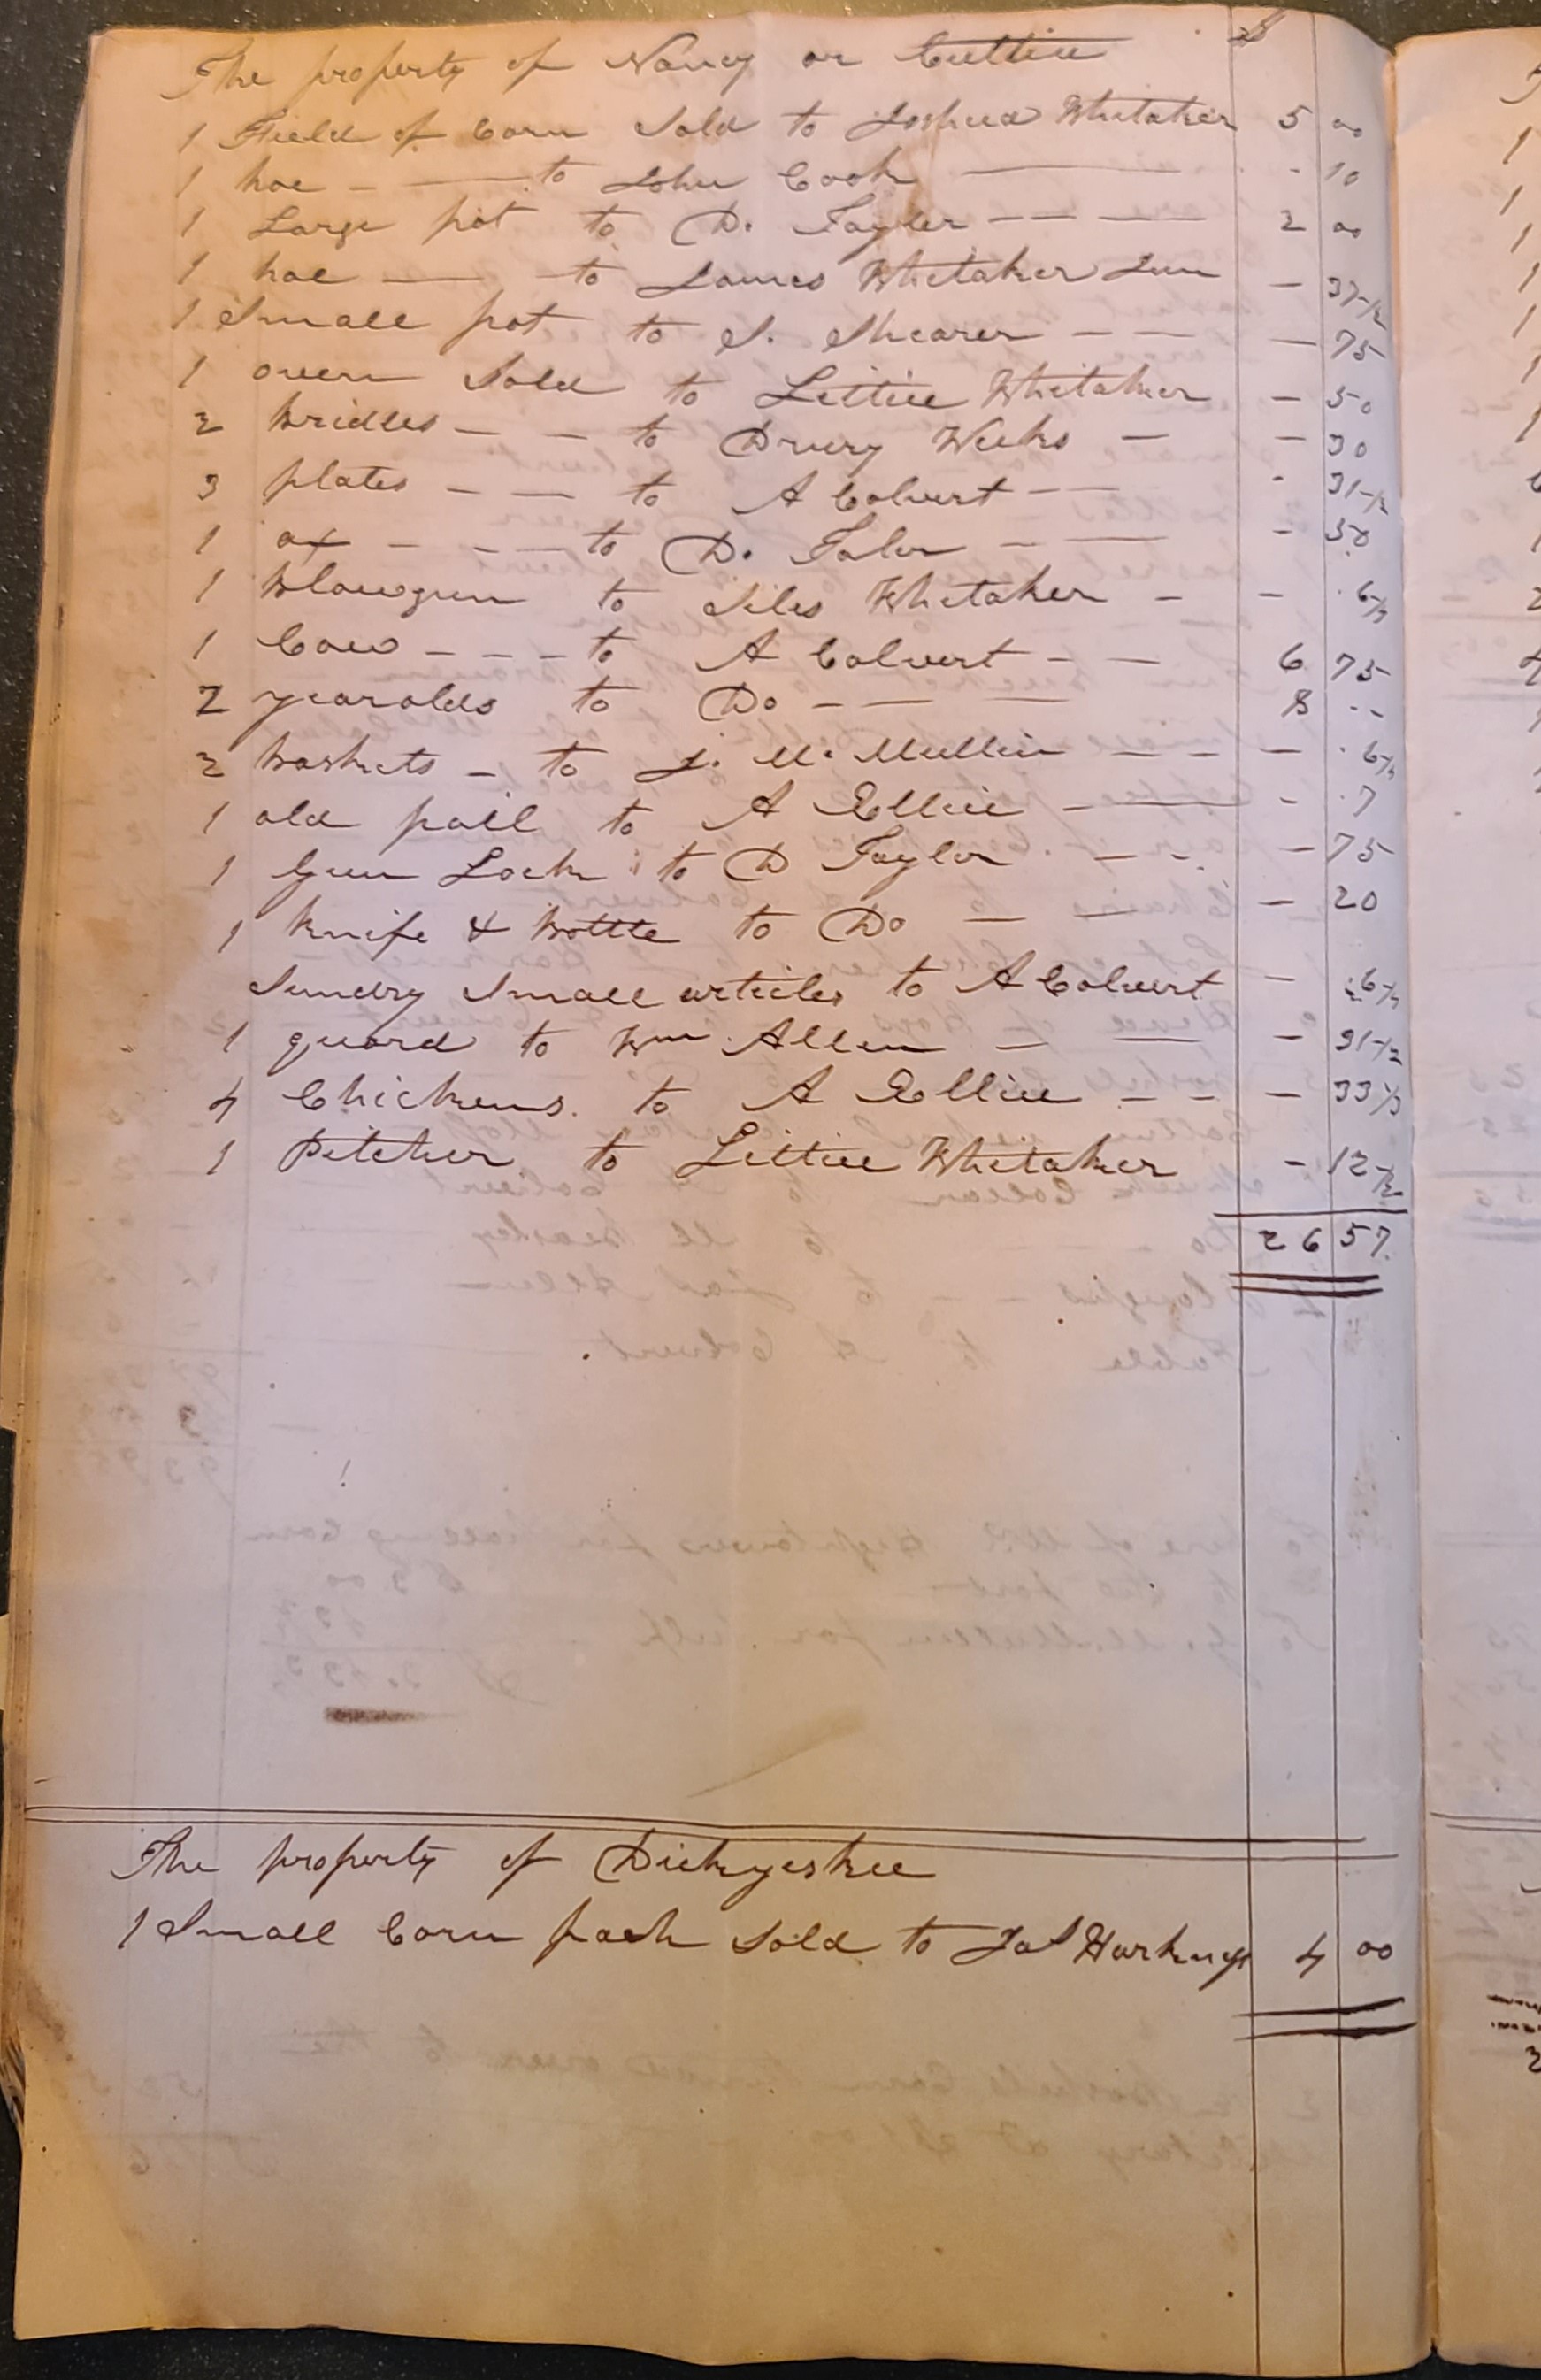 The property of Nancy or Cuttice $
1 Field of Corn Sold to Joshua Whitaker 5 00
1 hoe - — to John Cook — - 10
1 Large pot to D. Tayler — — — 2 00
1 hoe — - to James Whitaker Jun - 37-1/2
1 Small pot to S. Shearer - - — 75
1 oven Sold to Lettice Whitaker - 50
2 bridles - - to Drury Weeks - - 30
3 plates - - to A Colvert - - - 31-1/2
1 ax - - - to D. Talor - — - 50
1 blowgun to Siles Whitaker - - 6/3
1 Cow - - - to A Colvert - - 6 75
2 yearolds to Do - — — 8 --
2 baskets - to J. McMullin - - - 6/3
1 old pail to A Ellice - — - 7
1 Gun Lock to D Taylor - - - 75
1 knife & bottle to Do — — - 20
Sundry Small articles to A Colvert - 6/3
1 guard to Wm Allen — — - 31-1/2
4 Chickens. to A Ellice - - - 33 1/3
1 Pitcher to Lettice Whitaker - 12 1/2
26 57
The property of Dickyeskee
1 Small Corn pach Sold to Jas Harkings 4 00